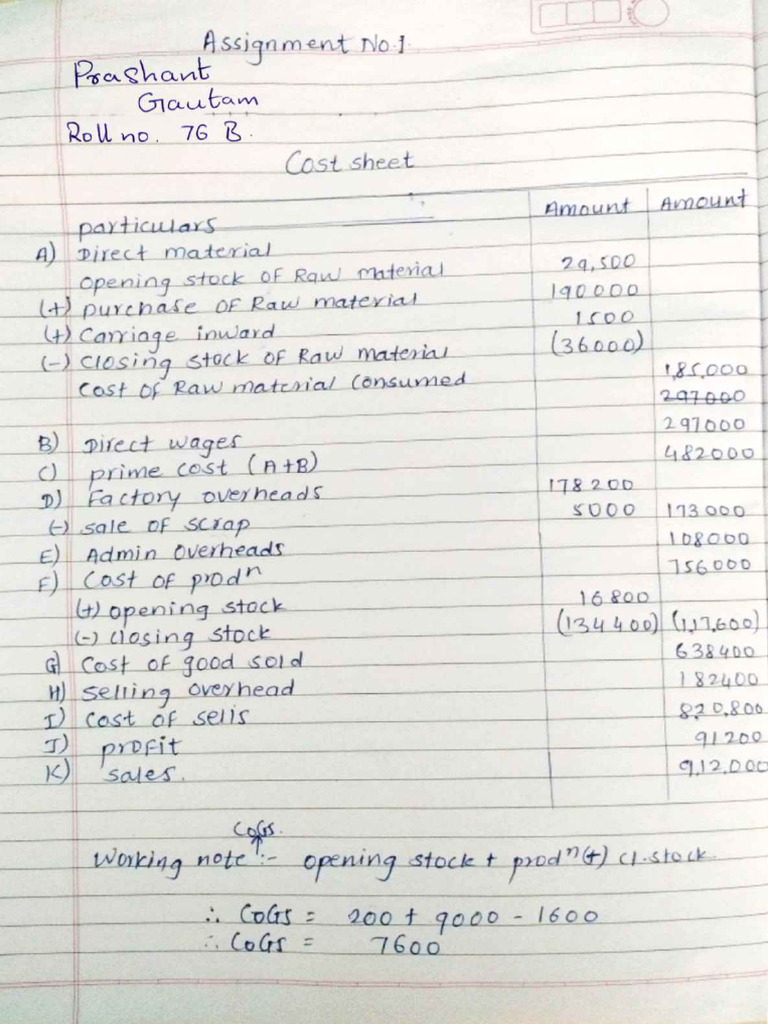 Assignment No.1
Prashant
Gautam
Roll no. 76 B.
Cost sheet
particulars Amount Amount
A) Direct material
opening stock of Raw material 29,500
(+) purchase of Raw material 190000
(+) Carriage inward 1500
(-) closing stock of Raw material (36000)
Cost of Raw material consumed 1,85,000
297000
B) Direct wages 297000
C) prime cost (A+B) 482000
D) Factory overheads 178200
(-) sale of scrap 5000 173000
E) Admin overheads 108000
F) Cost of prodn 756000
(+) opening stock 16800
(-) closing stock (134400) (1,17,600)
G) Cost of good sold 638400
H) selling overhead 182400
I) Cost of sells 8,20,800
J) profit 91200
K) sales. 9,12,000
CoGs.
Working note :- opening stock + prodn (+) cl.stock
∴ CoGs = 200 + 9000 - 1600
∴ CoGs = 7600